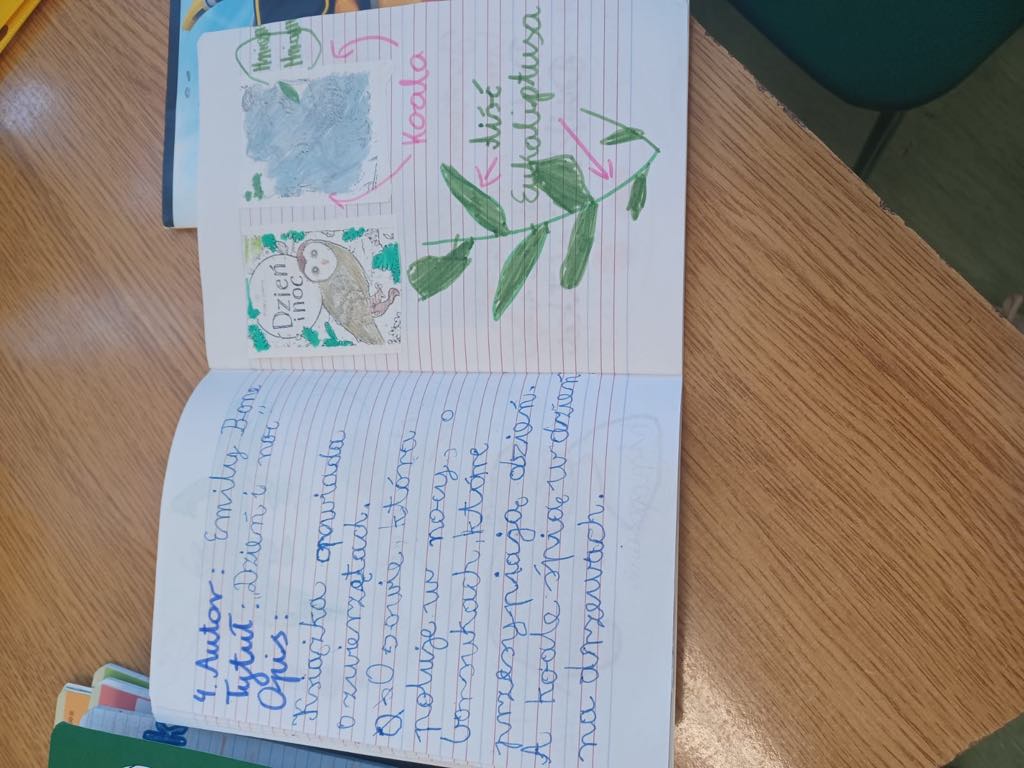 4. Autor: Emily Bone
Tytuł: „Dzień i noc"
Opis:
Książka opowiada
o zwierzętach.
O sowie, która
poluje w nocy, o
borsukach, które
przesypiają dzień.
A koale śpią w dzień
na drzewach.
Dzień
i noc
Koala
liść
Eukaliptusa